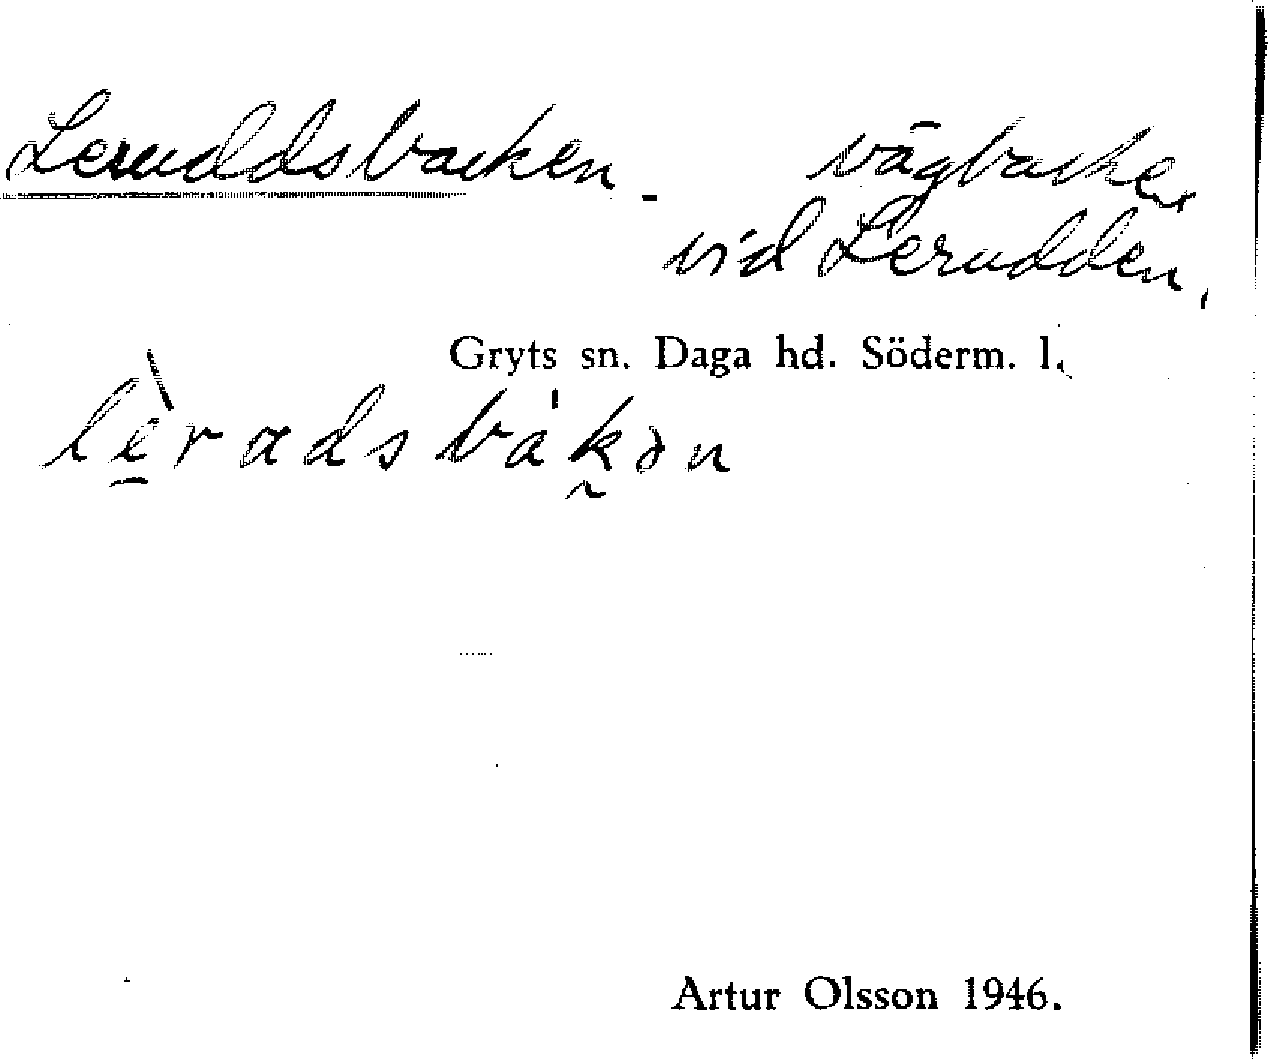 Leruddsbacken - vägbacke
vid Lerudden,
Gryts sn. Daga hd. Söderm. l.
lèradsbákən
Artur Olsson 1946.